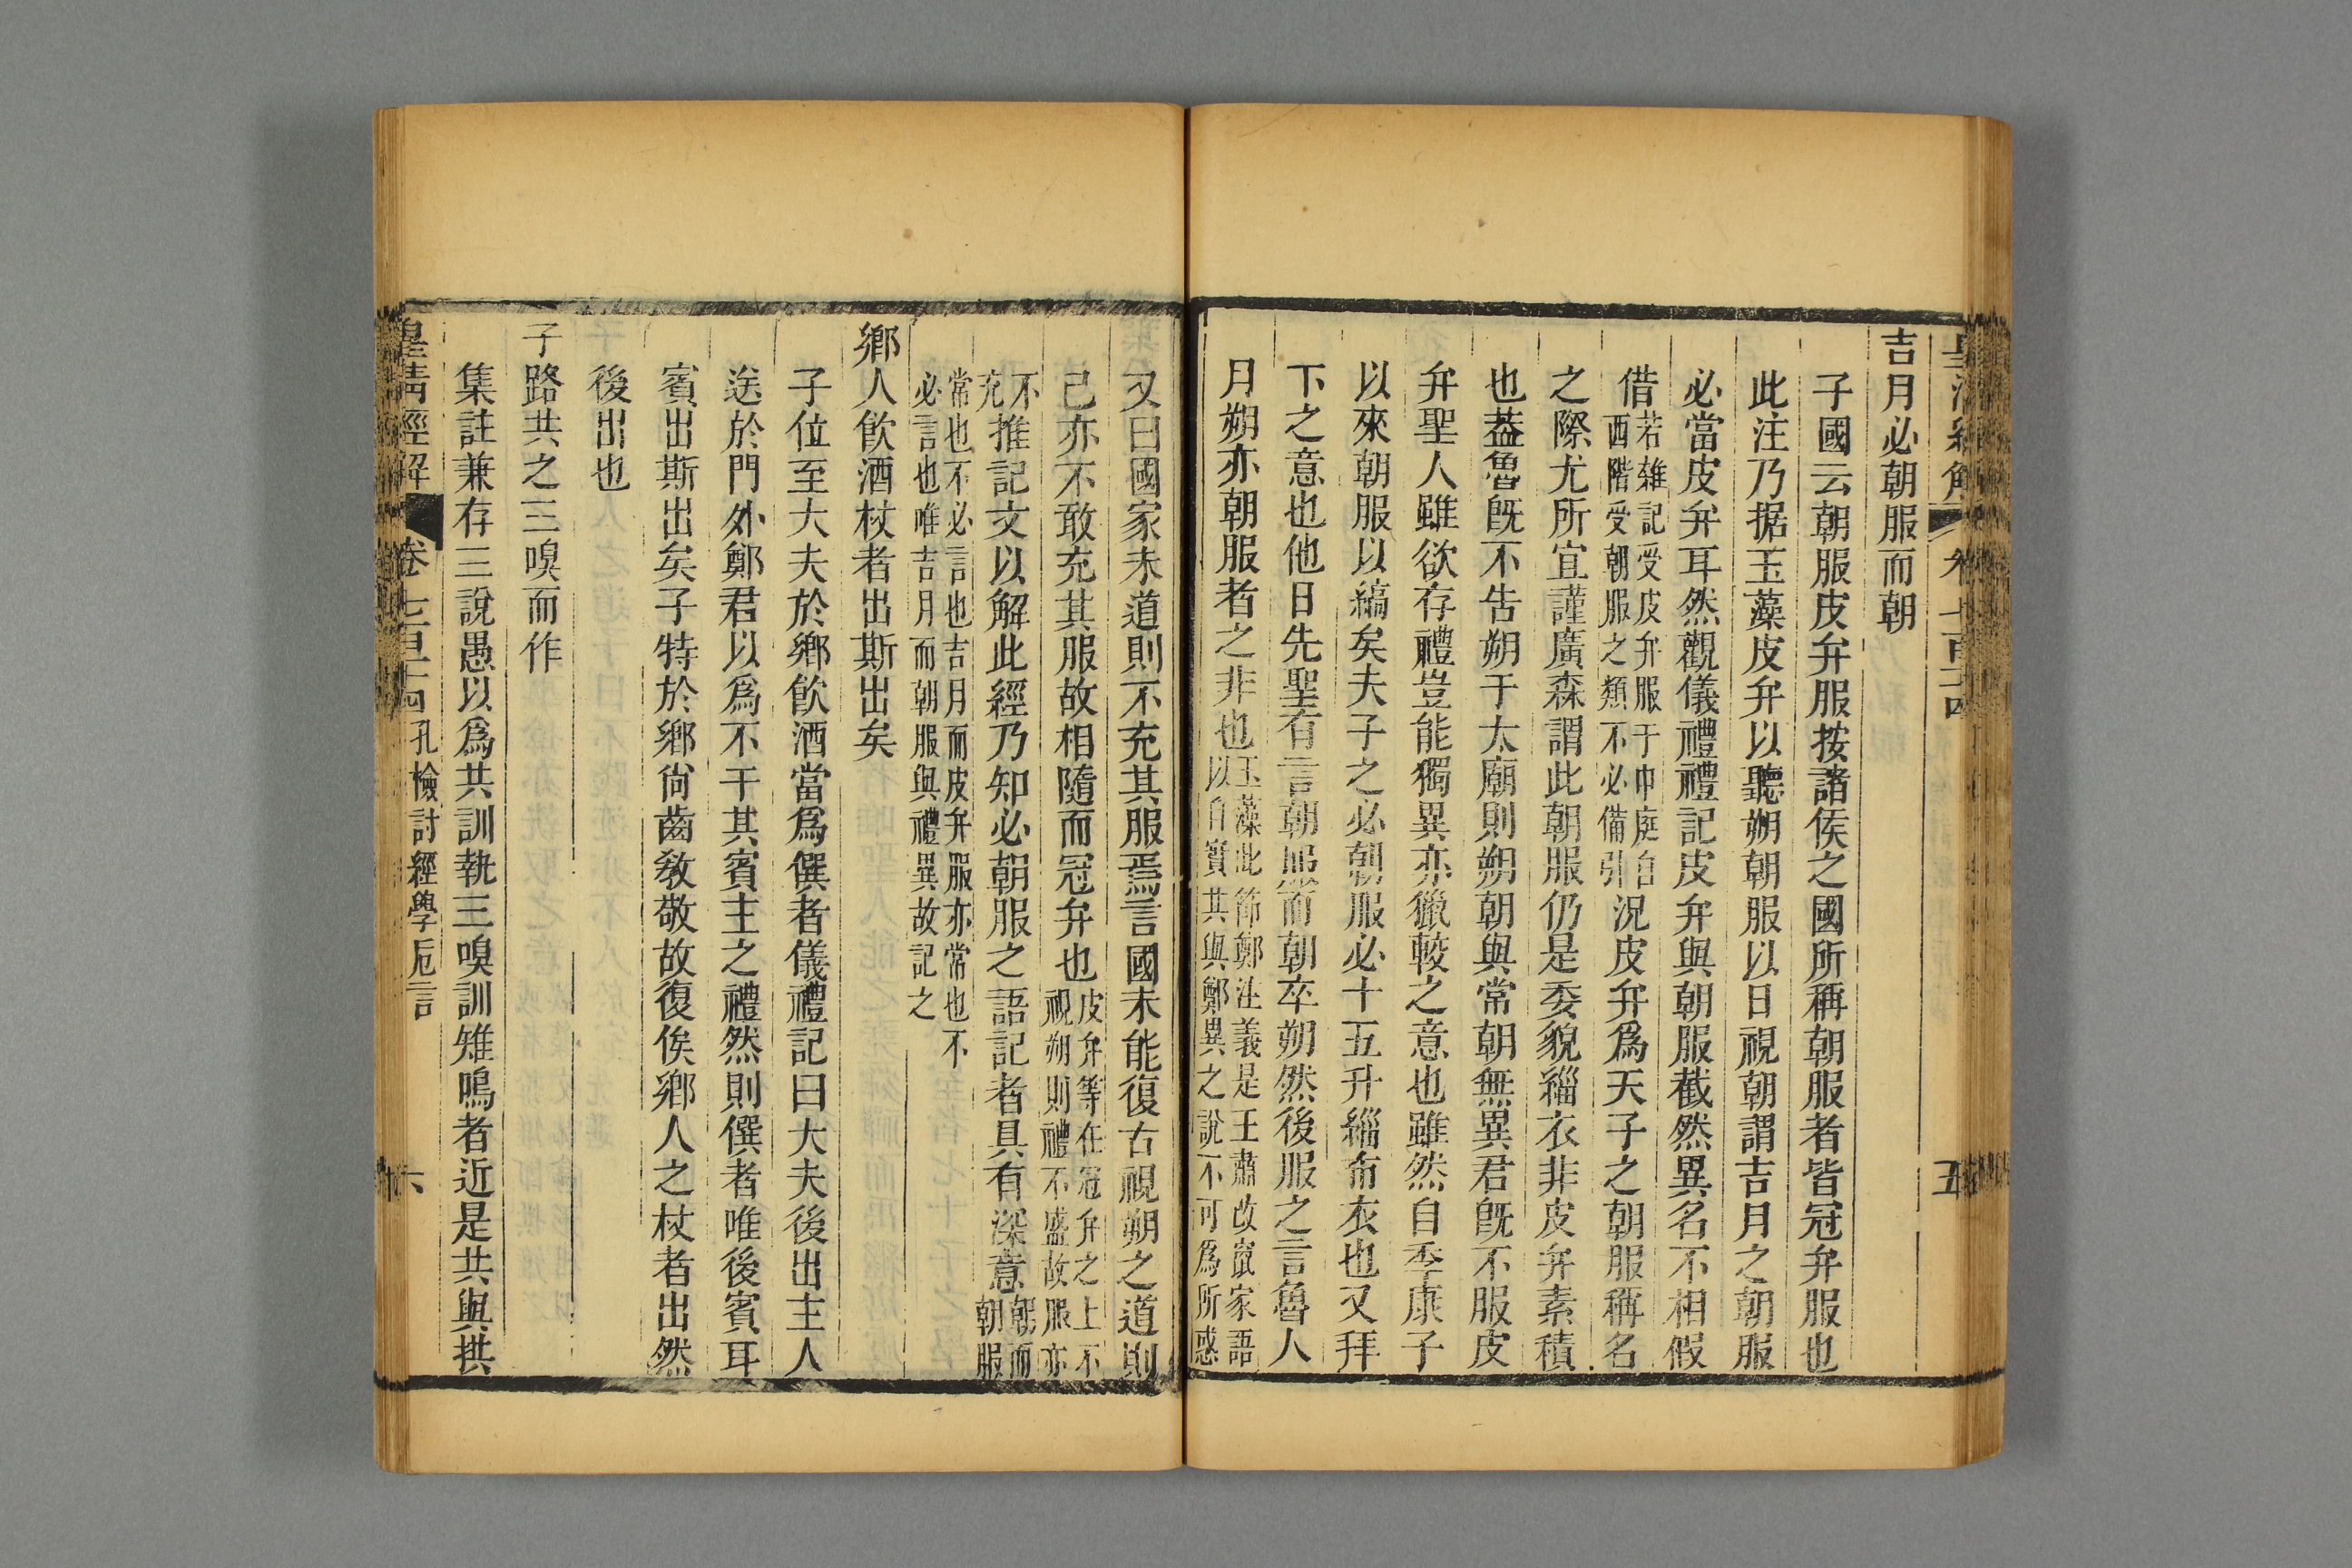 皇清經解 卷七百十四 五
吉月必朝服而朝
子國云朝服皮弁服按諸侯之國所稱朝服者皆冠弁服也
此注乃据玉藻皮弁以聽朔朝服以日視朝謂吉月之朝服
必當皮弁耳然觀儀禮禮記皮弁與朝服截然異名不相假
借若雜記受皮弁服于中庭自西階受朝服之類不必備引況皮弁爲天子之朝服稱名
之際尤所宜謹廣森謂此朝服仍是委貌緇衣非皮弁素積
也葢魯旣不告朔于太廟則朔朝與常朝無異君旣不服皮
弁聖人雖欲存禮豈能獨異亦獵較之意也雖然自季康子
以來朝服以縞矣夫子之必朝服必十五升緇布衣也又拜
下之意也他日先聖有言朝服而朝卒朔然後服之言魯人
月朔亦朝服者之非也玉藻此節鄭注義是王肅改竄家語以自實其與鄭異之說不可爲所惑
又曰國家未道則不充其服焉言國未能復古視朔之道則
己亦不敢充其服故相隨而冠弁也皮弁等在冠弁之上不視朔則禮不盛故服亦
不充推記文以解此經乃知必朝服之語記者具有深意朝而朝服
常也不必言也吉月而皮弁服亦常也不必言也唯吉月而朝服與禮異故記之
鄉人飮酒杖者出斯出矣
子位至大夫於鄉飮酒當爲僎者儀禮記曰大夫後出主人
送於門外鄭君以爲不干其賓主之禮然則僎者唯後賓耳
賓出斯出矣子特於鄉尙齒敎敬故復俟鄉人之杖者出然
後出也
子路共之三嗅而作
集註兼存三說愚以爲共訓執三嗅訓雉鳴者近是共與拱
皇清經解 卷七百十四 孔檢討經學卮言 六